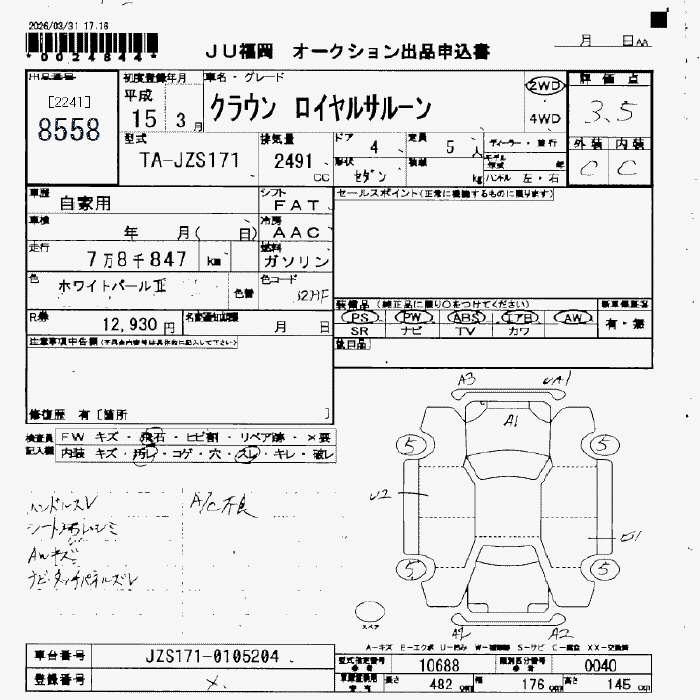 2026/03/31 17.16
*0024844*
JU福岡 オークション出品申込書
月 日
出品番号
[2241]
8558
初度登録年月
平成
15 3月
車名・グレード
クラウン ロイヤルサルーン
2WD
4WD
評価点
3.5
外装 内装
C C
型式
TA-JZS171
排気量
2491 cc
ドア 4
定員 5 人
ディーラー・並行
形状 セダン
積載 kg
モデル年式 年
ハンドル 左・右
車歴 自家用
シフト FAT
セールスポイント(正常に機能するものに限ります)
車検 年 月( 日)
冷房 AAC
走行 7万8千847 km
燃料 ガソリン
色 ホワイトパールII
色替
色コード
R券 12,930円
名変通知期限 月 日
装備品 (純正品に限り○をつけてください)
PS PW ABS エアB AW
SR ナビ TV カワ
新車保証書
有・無
後日品
注意事項申告欄(不具合内容等は具体的に記入して下さい)
修復歴 有[箇所 ]
検査員記入欄
FW キズ・飛石・ヒビ割・リペア跡・×要
内装 キズ・汚レ・コゲ・穴・スレ・キレ・破レ
ハンドルスレ
A/C不良
AWキズ
A3
A1
5 5
U2
5 5
A2
スペア
A-キズ E-エクボ U-凹み W-補修跡 S-サビ C-腐食 XX-交換済
車台番号 JZS171-0105204
登録番号
型式指定番号 10688
類別区分番号 0040
長さ 482 cm 幅 176 cm 高さ 145 cm